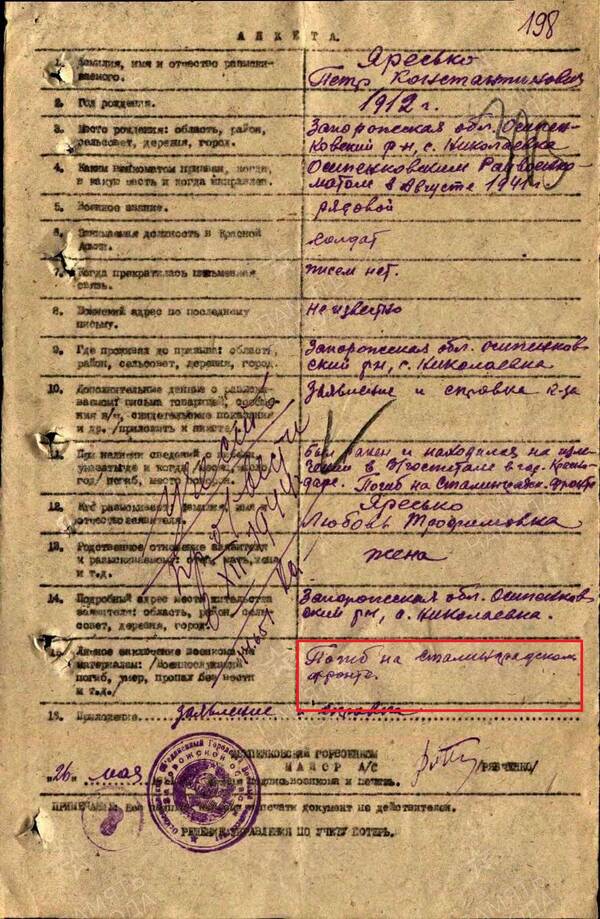 198
АНКЕТА.
1. Фамилия, имя и отчество разыски-
ваемого.
Яресько
Петр Константинович
2. Год рождения.
1912 г.
3. Место рождения: область, район,
сельсовет, деревня, город.
Запорожская обл. Осипен-
ковский р-н, с. Николаевка
4. Каким военкоматом призван, когда,
в какую часть и когда направлен.
Осипенковским Райвоенко-
матом в Августе 1941 г.
5. Военное звание.
рядовой
6. Занимаемая должность в Красной
Армии.
солдат
7. Когда прекратилась письменная
связь.
писем нет.
8. Воинский адрес по последнему
письму.
не известно
9. Где проживал до призыва: область,
район, сельсовет, деревня, город.
Запорожская обл. Осипенков-
ский р-н, с. Николаевка
10. Дополнительные данные о разыски-
ваемом: письма товарищей,
в/ч, свидетельские показания
и др. /приложить к анкете/
Заявление и справка
11. При наличии сведений о
указать где и когда
год/ погиб, место
был ранен и находился на изле-
чении в Эгоспитале в гор. Красно-
даре. Погиб на Сталинградск. фронте
12. Кто разыскивает: фамилия, имя и
отчество заявителя.
Яресько
Любовь Трофимовна
13. Родственное отношение заявителя
к разыскиваемому: отец, мать, жена
и т.д.
жена
14. Подробный адрес местожительства
заявителя: область, район, сель-
совет, деревня, город.
Запорожская обл. Осипенков-
ский р-н, с. Николаевка.
пропал
XII 1944
15. Личное заключение военкома по
материалам: /Военнослужащий
погиб, умер, пропал без вести
и т.д./
Погиб на Сталинградском
фронте.
16. Приложение: заявление и справка
ОСИПЕНКОВСКИЙ ГОРВОЕНКОМ
МАЙОР А/С
/РЯБЧЕНКО/
"26" мая
ПРИМЕЧАНИЕ: Без печати документ не действителен.
РЕШЕНИЕ УПРАВЛЕНИЯ ПО УЧЕТУ ПОТЕРЬ.